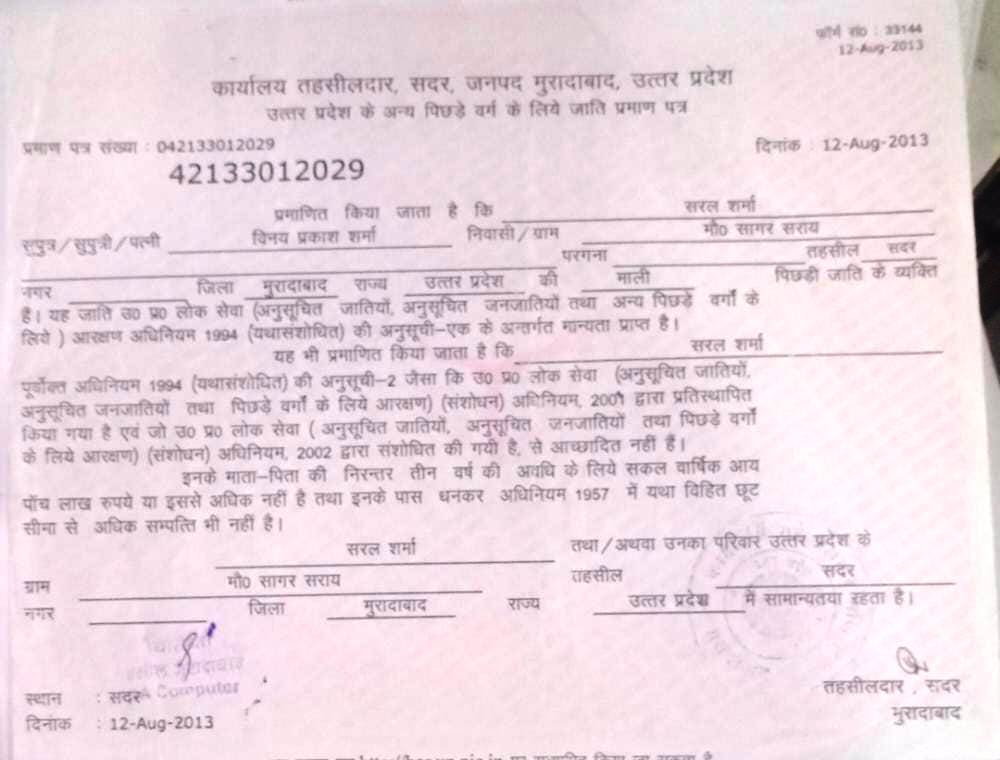 फॉर्म सं0 : 33144
12-Aug-2013
कार्यालय तहसीलदार, सदर, जनपद मुरादाबाद, उत्तर प्रदेश
उत्तर प्रदेश के अन्य पिछड़े वर्ग के लिये जाति प्रमाण पत्र
प्रमाण पत्र संख्या : 042133012029 दिनांक : 12-Aug-2013
42133012029
प्रमाणित किया जाता है कि सरल शर्मा
सुपुत्र/सुपुत्री/पत्नी विनय प्रकाश शर्मा निवासी/ग्राम मौ0 सागर सराय
परगना तहसील सदर
नगर जिला मुरादाबाद राज्य उत्तर प्रदेश की माली पिछड़ी जाति के व्यक्ति
है। यह जाति उ0 प्र0 लोक सेवा (अनुसूचित जातियों, अनुसूचित जनजातियों तथा अन्य पिछड़े वर्गों के
लिये ) आरक्षण अधिनियम 1994 (यथासंशोधित) की अनुसूची-एक के अन्तर्गत मान्यता प्राप्त है।
यह भी प्रमाणित किया जाता है कि सरल शर्मा
पूर्वोक्त अधिनियम 1994 (यथासंशोधित) की अनुसूची-2 जैसा कि उ0 प्र0 लोक सेवा (अनुसूचित जातियों,
अनुसूचित जनजातियों तथा पिछड़े वर्गों के लिये आरक्षण) (संशोधन) अधिनियम, 2001 द्वारा प्रतिस्थापित
किया गया है एवं जो उ0 प्र0 लोक सेवा ( अनुसूचित जातियों, अनुसूचित जनजातियों तथा पिछड़े वर्गों
के लिये आरक्षण) (संशोधन) अधिनियम, 2002 द्वारा संशोधित की गयी है, से आच्छादित नहीं है।
इनके माता-पिता की निरन्तर तीन वर्ष की अवधि के लिये सकल वार्षिक आय
पाँच लाख रुपये या इससे अधिक नहीं है तथा इनके पास धनकर अधिनियम 1957 में यथा विहित छूट
सीमा से अधिक सम्पत्ति भी नहीं है।
सरल शर्मा तथा/अथवा उनका परिवार उत्तर प्रदेश के
ग्राम मौ0 सागर सराय तहसील सदर
नगर जिला मुरादाबाद राज्य उत्तर प्रदेश में सामान्यतया रहता है।
मुरादाबाद
स्थान : सदर Computer तहसीलदार , सदर
दिनांक : 12-Aug-2013 मुरादाबाद